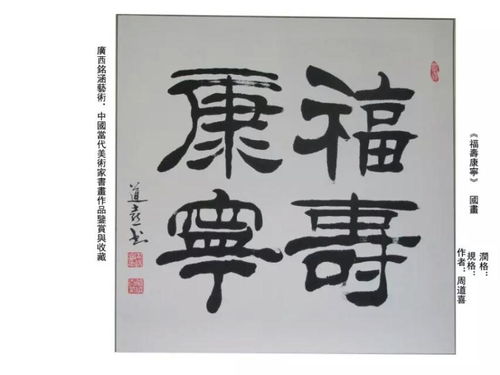 《福壽康寧》 國畫
潤格：
規格：
作者：周道喜
福壽
康寧
道喜书
廣西銘涵藝術．中國當代美術家書畫作品鑒賞與收藏